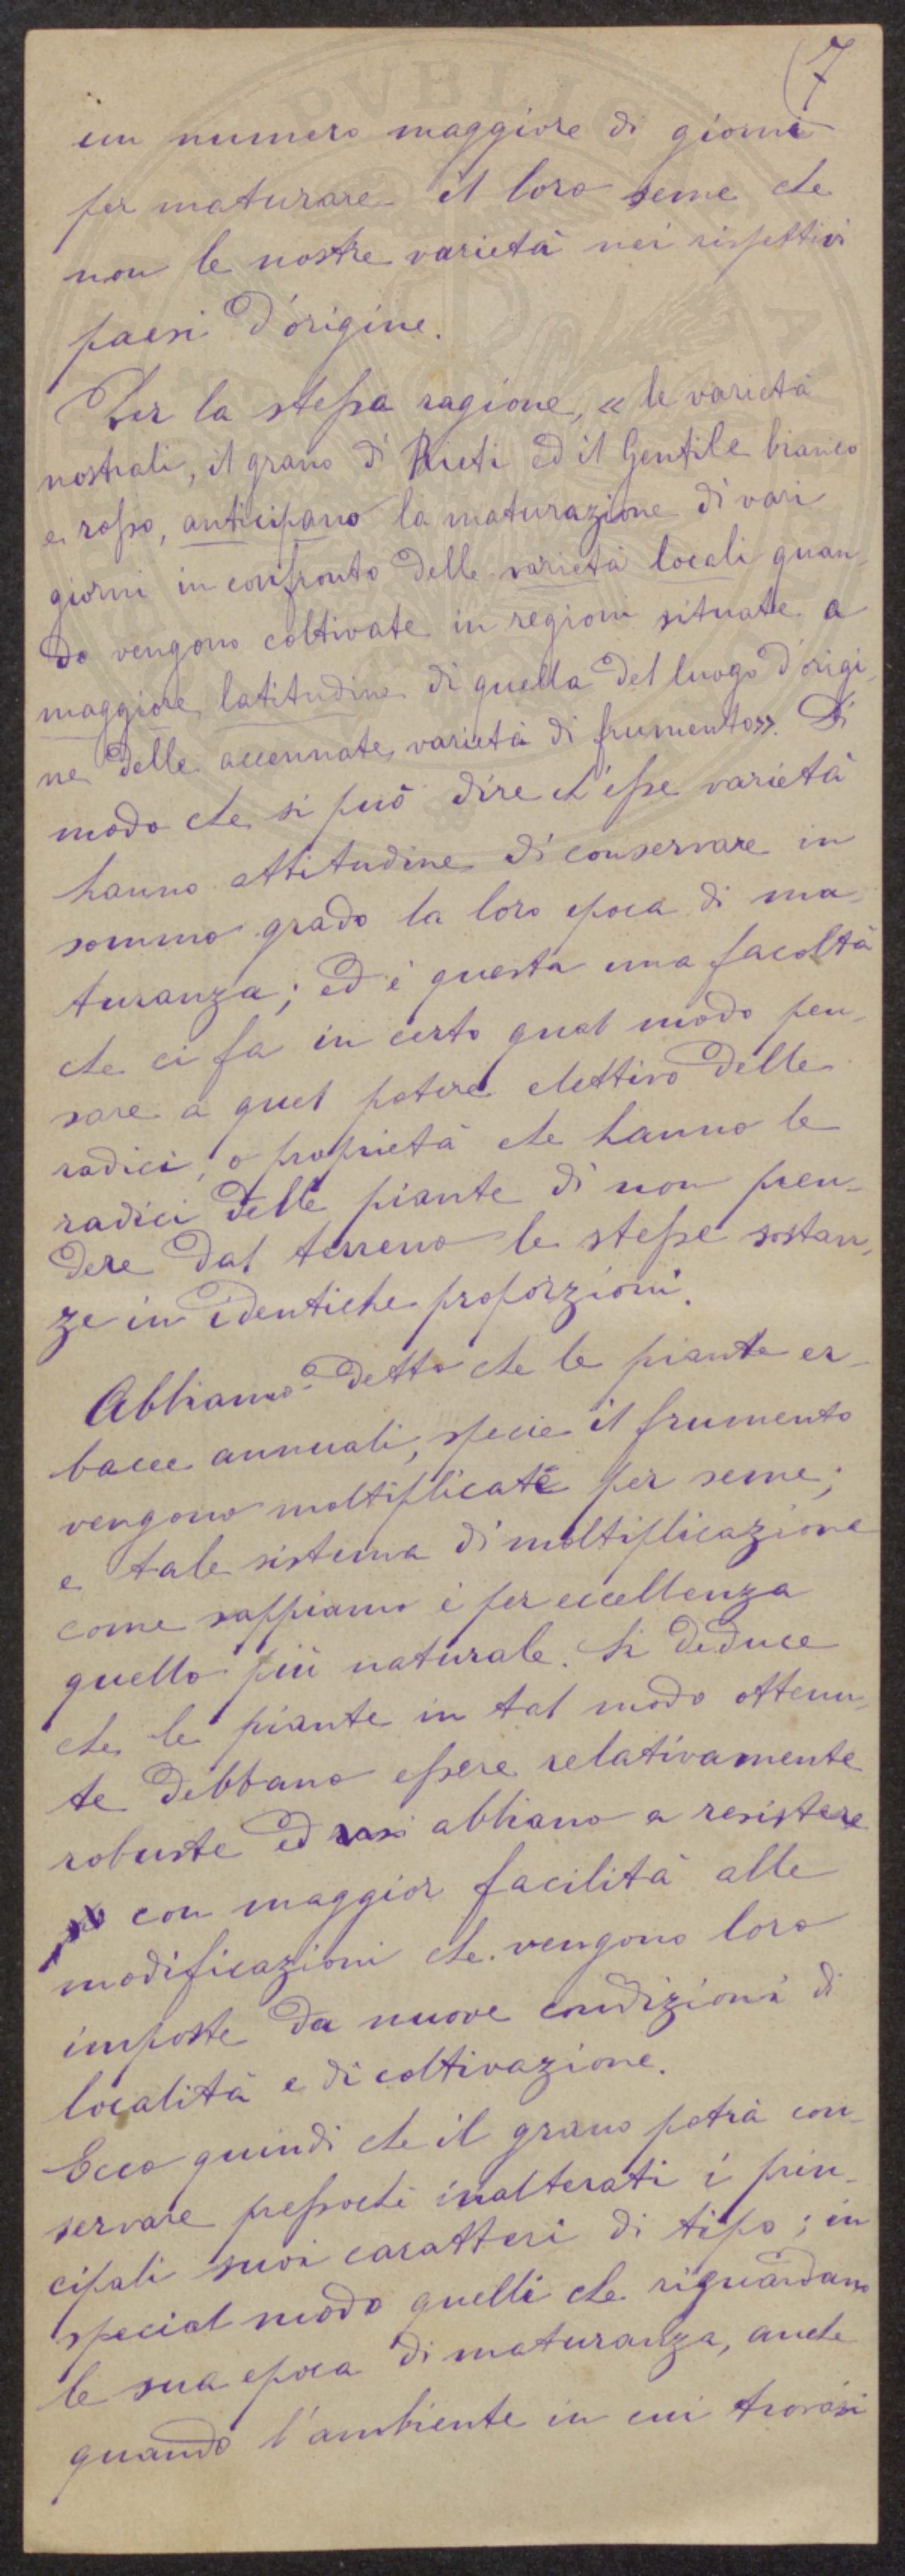 7
un numero maggiore di giorni
per maturare il loro seme che
non le nostre varietà nei rispettivi
paesi d'origine.
Per la stessa ragione, « le varietà
nostrali, il grano di Rieti ed il Gentile bianco
e rosso, anticipano la maturazione di vari
giorni in confronto delle varietà locali quan-
do vengono coltivate in regioni situate a
maggiore latitudine di quella del luogo d'origi-
ne delle accennate varietà di frumento ». Di
modo che si può dire ch'esse varietà
hanno attitudine di conservare in
sommo grado la loro epoca di ma-
turanza; ed è questa una facoltà
che ci fa in certo qual modo pen-
sare a quel potere elettivo delle
radici, o proprietà che hanno le
radici delle piante di non pren-
dere dal terreno le stesse sostan-
ze in identiche proporzioni.
Abbiamo detto che le piante er-
bacee annuali, specie il frumento
vengono moltiplicate per seme;
e tale sistema di moltiplicazione
come sappiamo è per eccellenza
quello più naturale. Si deduce
che le piante in tal modo ottenu-
te debbano essere relativamente
robuste ed abbiano a resistere
con maggior facilità alle
modificazioni che vengono loro
imposte da nuove condizioni di
località e di coltivazione.
Ecco quindi che il grano potrà con-
servare pressochè inalterati i prin-
cipali suoi caratteri di tipo; in
special modo quelli che riguardano
la sua epoca di maturanza, anche
quando l'ambiente in cui trovasi